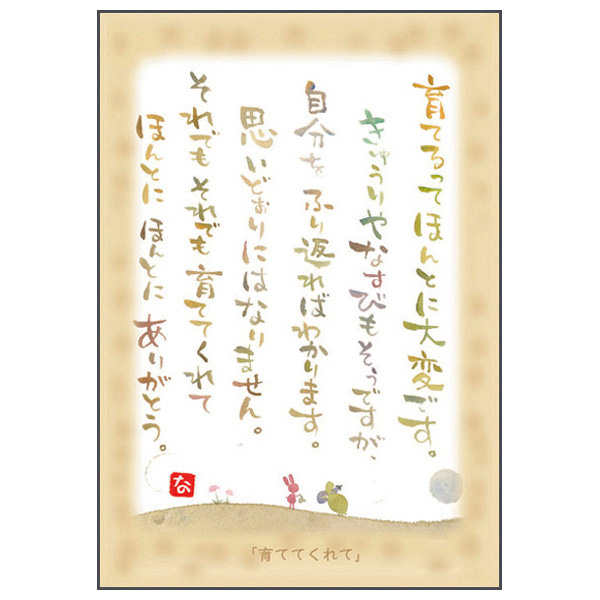 育てるってほんとに大変です。
きゅうりやなすびもそうですが、
自分をふり返ればわかります。
思いどおりにはなりません。
それでもそれでも育ててくれて
ほんとにほんとにありがとう。
な
「育ててくれて」